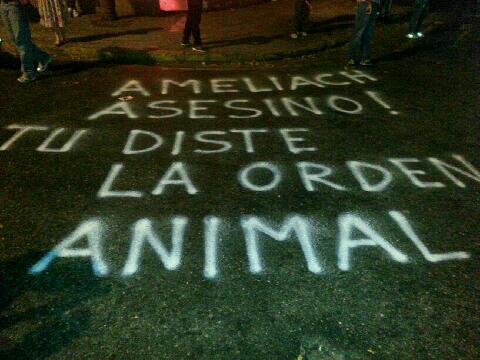 AMELIACH
ASESINO!
TU DISTE
LA ORDEN
ANIMAL